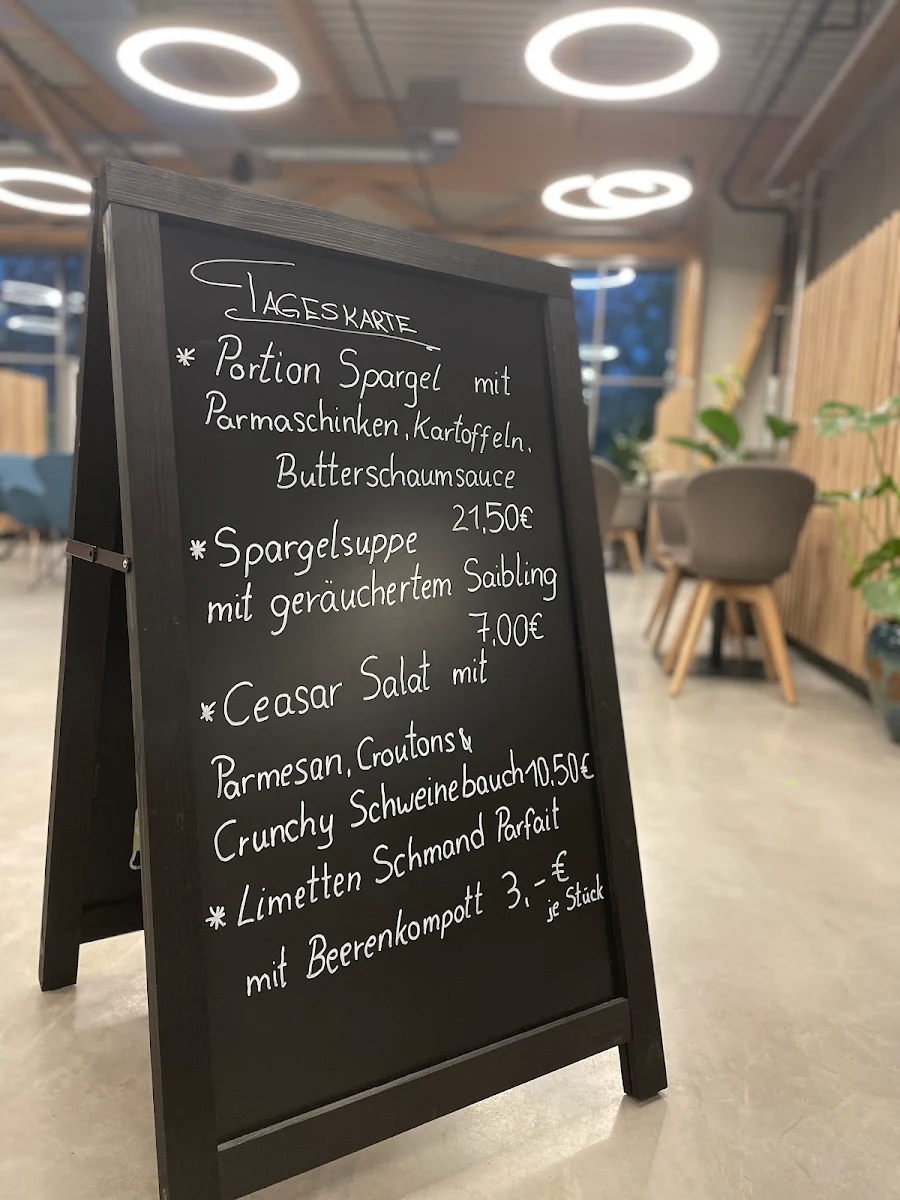 TAGESKARTE
* Portion Spargel mit
Parmaschinken, Kartoffeln,
Butterschaumsauce
21,50€
* Spargelsuppe
mit geräuchertem Saibling
7,00€
* Ceasar Salat mit
Parmesan, Croutons &
Crunchy Schweinebauch 10,50€
* Limetten Schmand Parfait
mit Beerenkompott 3,-€
je Stück